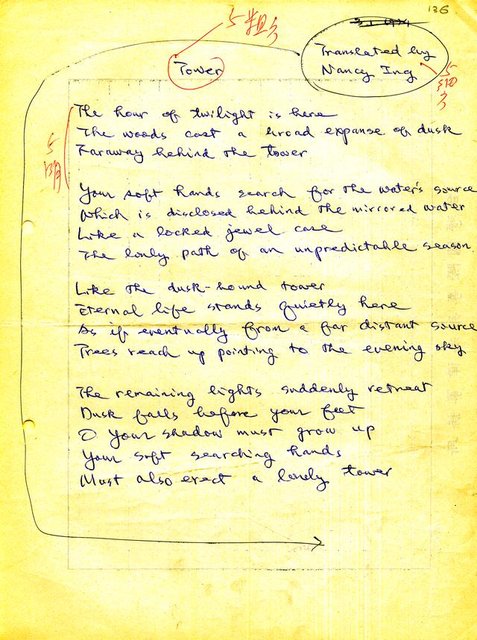 136
5粗
Translated by
Nancy Ing
5細
Tower
5明
The hour of twilight is here
The woods cast a broad expanse of dusk
Faraway behind the tower
Your soft hands search for the water's source
Which is disclosed behind the mirrored water
Like a locked jewel case
The lonly path of an unpredictable season.
Like the dusk-hound tower
Eternal life stands quietly here
As if eventually from a far distant source
Trees reach up pointing to the evening sky
The remaining lights suddenly retreat
Dusk falls before your feet
O Your shadow must grow up
Your soft searching hands
Must also erect a lonly tower